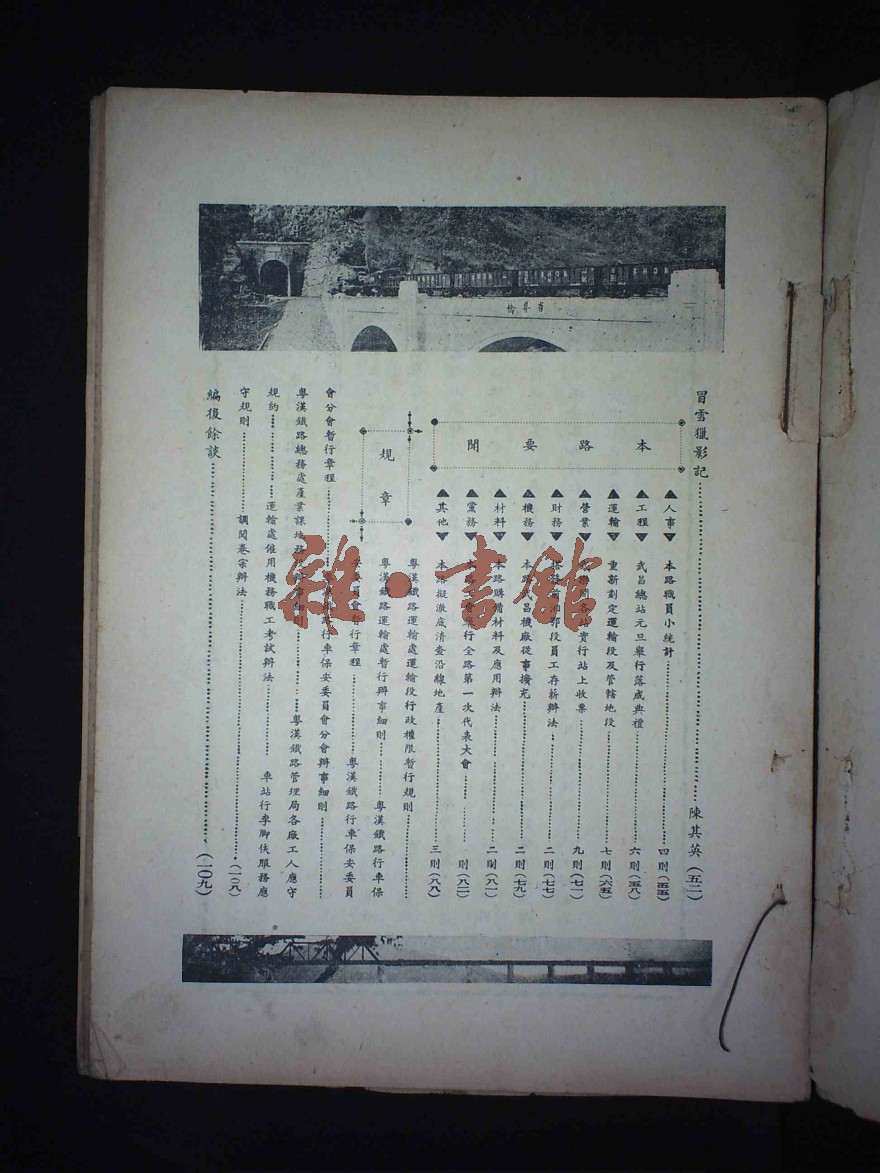 橋昇省
冒雪獵影記 陳其英(五二)
本路要聞
人事 本路職員小統計 四則(五五)
工程 武昌總站元旦舉行落成典禮 六則(五八)
運輸 重新劃定運輸段及管轄地段 七則(六五)
營業 各站實行站上收票 九則(七一)
財務 湘鄂段員工存薪辦法 二則(七七)
機務 本路武昌機廠從事擴充 二則(七九)
材料 本路購備材料及應用辦法 二則(八一)
黨務 本路 會舉行全路第一次代表大會 則(八二)
其他 本路擬澈底清查沿線地產 三則(八八)
規章
粵漢鐵路運輸處運輸段行政權限暫行規則
粵漢鐵路運輸處暫行辦事細則 粵漢鐵路行車保
安委員會暫行章程 粵漢鐵路行車保安委員
會分會暫行章程 粵漢鐵路行車保安委員會分會辦事細則
粵漢鐵路總務處產業課地務 辦事細則 粵漢鐵路管理局各廠工人應守
規約 運輸處僱用機務職工考試辦法 車站行李腳伕服務應
守規則 調閱卷宗辦法 (一〇八)
編後餘談 (一〇九)
雜·書館